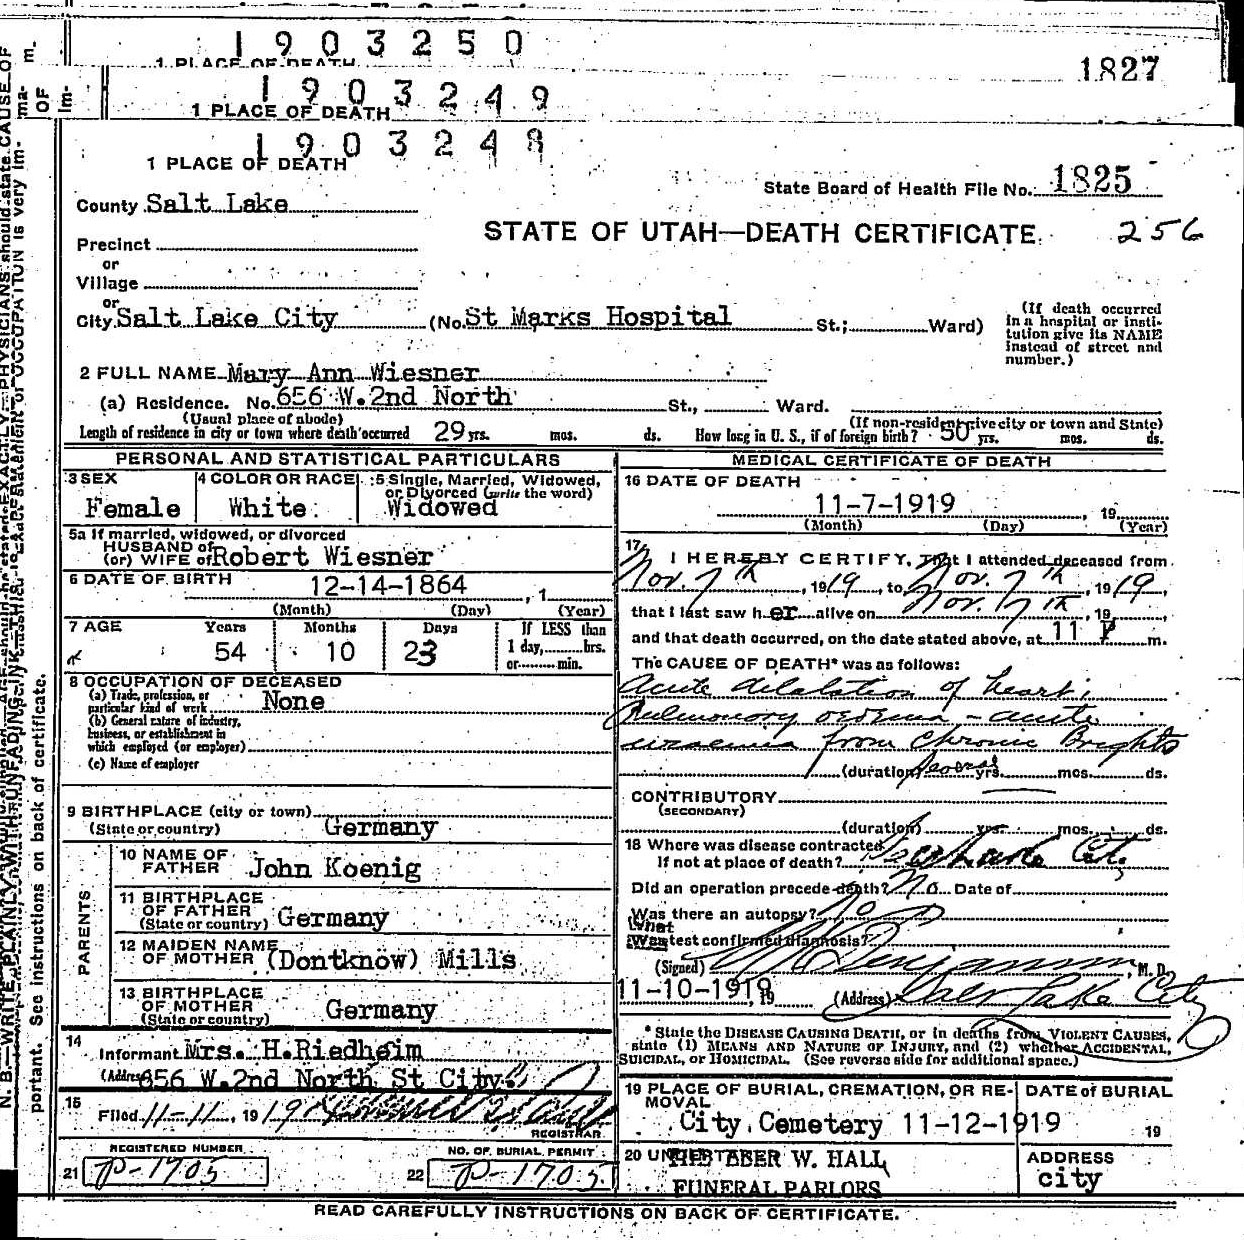 1903250
1 PLACE OF DEATH
1827
1903249
1 PLACE OF DEATH
1903248
1 PLACE OF DEATH
State Board of Health File No. 1825
County Salt Lake
STATE OF UTAH—DEATH CERTIFICATE 256
Precinct
or
Village
or
City Salt Lake City (No. St Marks Hospital St.; Ward)
(If death occurred in a hospital or insti-
tution give its NAME instead of street and number.)
2 FULL NAME Mary Ann Wiesner
(a) Residence. No. 656 W.2nd North St., Ward.
(Usual place of abode) (If non-resident give city or town and State)
Length of residence in city or town where death occurred 29 yrs. mos. ds. How long in U. S., if of foreign birth? 50 yrs. mos. ds.
PERSONAL AND STATISTICAL PARTICULARS
3 SEX Female
4 COLOR OR RACE White
5 Single, Married, Widowed, or Divorced (write the word) Widowed
5a If married, widowed, or divorced
HUSBAND of
(or) WIFE of Robert Wiesner
6 DATE OF BIRTH 12-14-1864, 1
(Month) (Day) (Year)
7 AGE Years Months Days If LESS than
54 10 23 1 day, hrs.
or min.
8 OCCUPATION OF DECEASED
(a) Trade, profession, or particular kind of work None
(b) General nature of industry, business, or establishment in which employed (or employer)
(c) Name of employer
9 BIRTHPLACE (city or town)
(State or country) Germany
PARENTS
10 NAME OF FATHER John Koenig
11 BIRTHPLACE OF FATHER (State or country) Germany
12 MAIDEN NAME OF MOTHER (Dontknow) Mills
13 BIRTHPLACE OF MOTHER (State or country) Germany
14 Informant Mrs. H.Riedheim
(Address 656 W.2nd North St City.
15 Filed 11-11-, 1919
REGISTRAR
REGISTERED NUMBER
21 P-1705
NO. OF BURIAL PERMIT
22 P-1705
MEDICAL CERTIFICATE OF DEATH
16 DATE OF DEATH
11-7-1919, 19
(Month) (Day) (Year)
17 I HEREBY CERTIFY, That I attended deceased from
Nov. 7th, 1919, to Nov. 7th, 1919,
that I last saw her alive on Nov. 7th, 19
and that death occurred, on the date stated above, at 11 P m.
The CAUSE OF DEATH* was as follows:
Acute dilatation of heart;
Pulmonary oedema - acute
uraemia from Chronic Brights
(duration) several yrs. mos. ds.
CONTRIBUTORY
(SECONDARY)
(duration) yrs. mos. ds.
18 Where was disease contracted
If not at place of death? City
Did an operation precede death? No Date of
Was there an autopsy? No
What
Was test confirmed diagnosis?
(Signed) Benjamin, M. D.
11-10-1919, 19 (Address) Salt Lake City
* State the DISEASE CAUSING DEATH, or in deaths from VIOLENT CAUSES,
state (1) MEANS AND NATURE OF INJURY, and (2) whether ACCIDENTAL,
SUICIDAL, or HOMICIDAL. (See reverse side for additional space.)
19 PLACE OF BURIAL, CREMATION, OR RE-
MOVAL
DATE of BURIAL
City Cemetery 11-12-1919 19
20 UNDERTAKER W. HALL
FUNERAL PARLORS
ADDRESS
city
READ CAREFULLY INSTRUCTIONS ON BACK OF CERTIFICATE.
portant. See instructions on back of certificate.